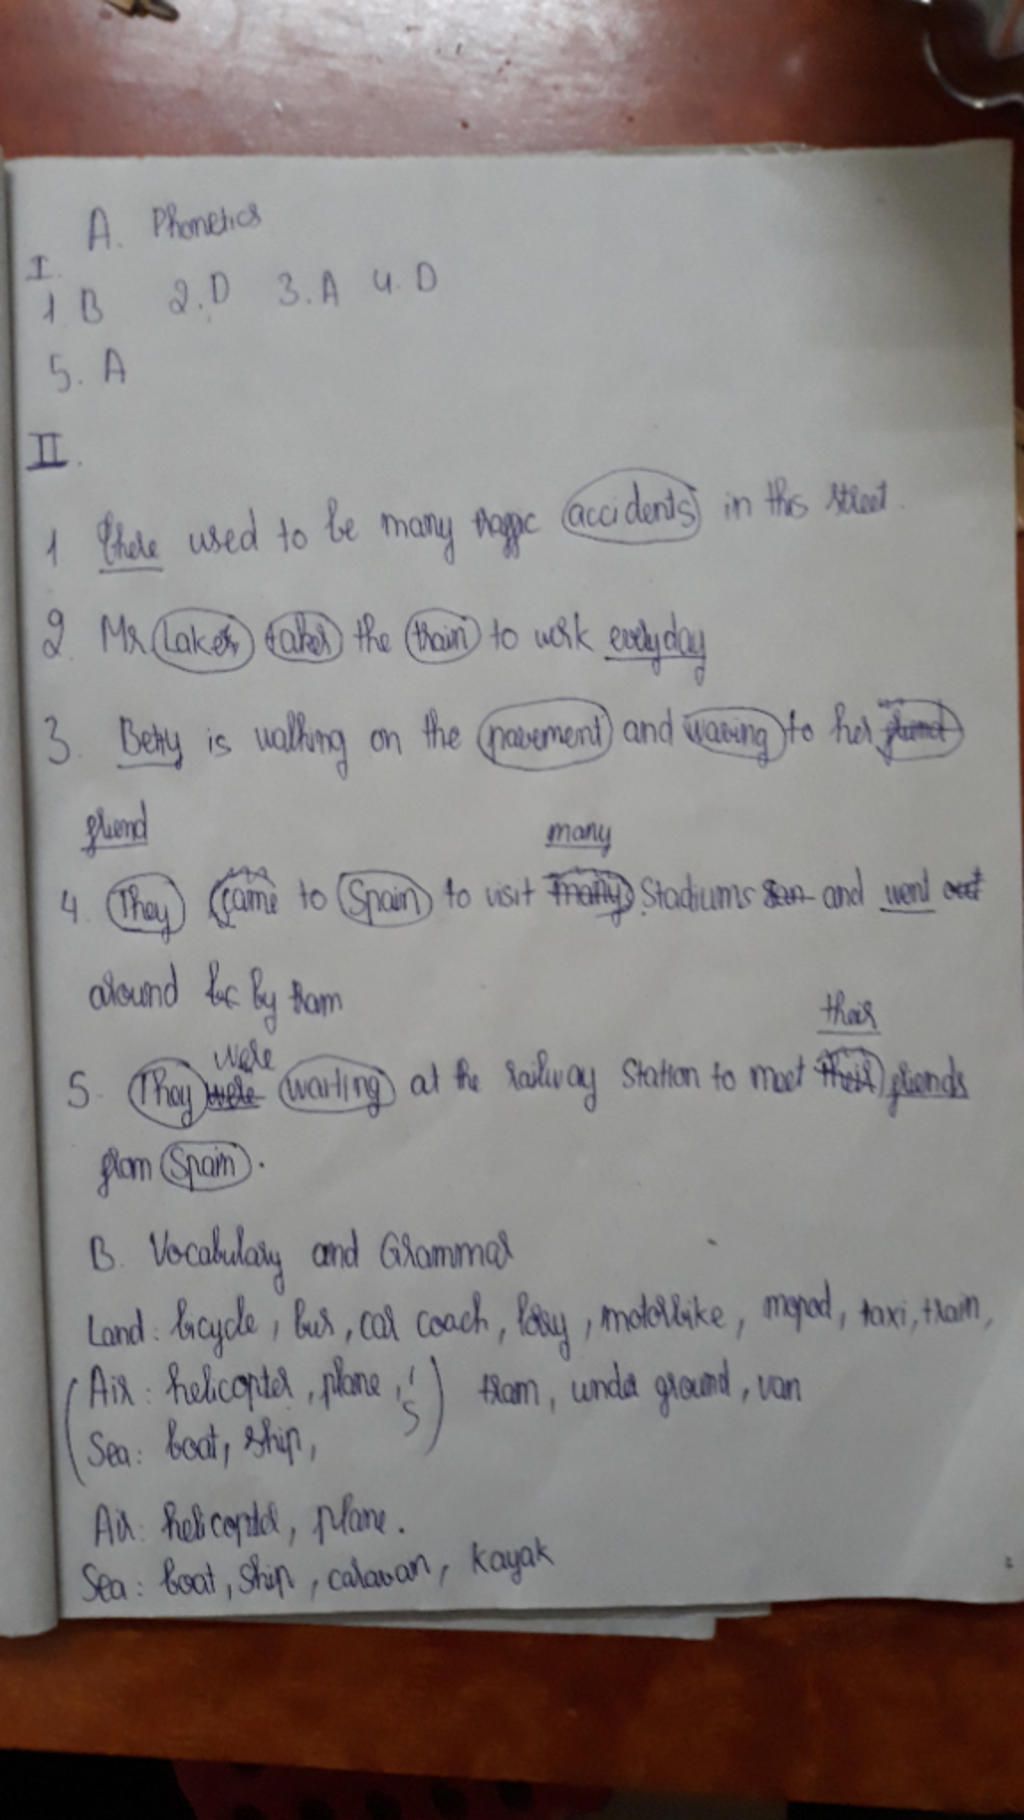 A. Phonetics
I.
1 B 2. D 3. A 4. D
5. A
II.
1 there used to be many traffic accidents in this street.
2. Mr Lake takes the train to work everyday
3. Betty is walking on the pavement and waving to her friend
friend
many
4. They came to Spain to visit many Stadiums and went out
around by tram
their
were
5. They were waiting at the railway Station to meet their friends
from Spain.
B. Vocabulary and Grammar
Land: bicycle, bus, car coach, lorry, motorbike, moped, taxi, train,
(Air: helicopter, plane, ) tram, under ground, van
Sea: boat, ship,
Air: helicopter, plane.
Sea: boat, ship, caravan, kayak